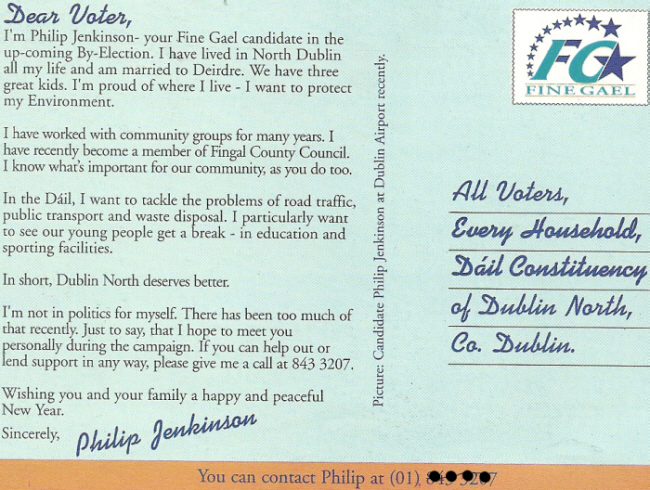 Dear Voter,
I'm Philip Jenkinson- your Fine Gael candidate in the
up-coming By-Election. I have lived in North Dublin
all my life and am married to Deirdre. We have three
great kids. I'm proud of where I live - I want to protect
my Environment.
I have worked with community groups for many years. I
have recently become a member of Fingal County Council.
I know what's important for our community, as you do too.
In the Dáil, I want to tackle the problems of road traffic,
public transport and waste disposal. I particularly want
to see our young people get a break - in education and
sporting facilities.
In short, Dublin North deserves better.
I'm not in politics for myself. There has been too much of
that recently. Just to say, that I hope to meet you
personally during the campaign. If you can help out or
lend support in any way, please give me a call at 843 3207.
Wishing you and your family a happy and peaceful
New Year.
Sincerely, Philip Jenkinson
Picture: Candidate Philip Jenkinson at Dublin Airport recently.
FG
FINE GAEL
All Voters,
Every Household,
Dáil Constituency
of Dublin North,
Co. Dublin.
You can contact Philip at (01)